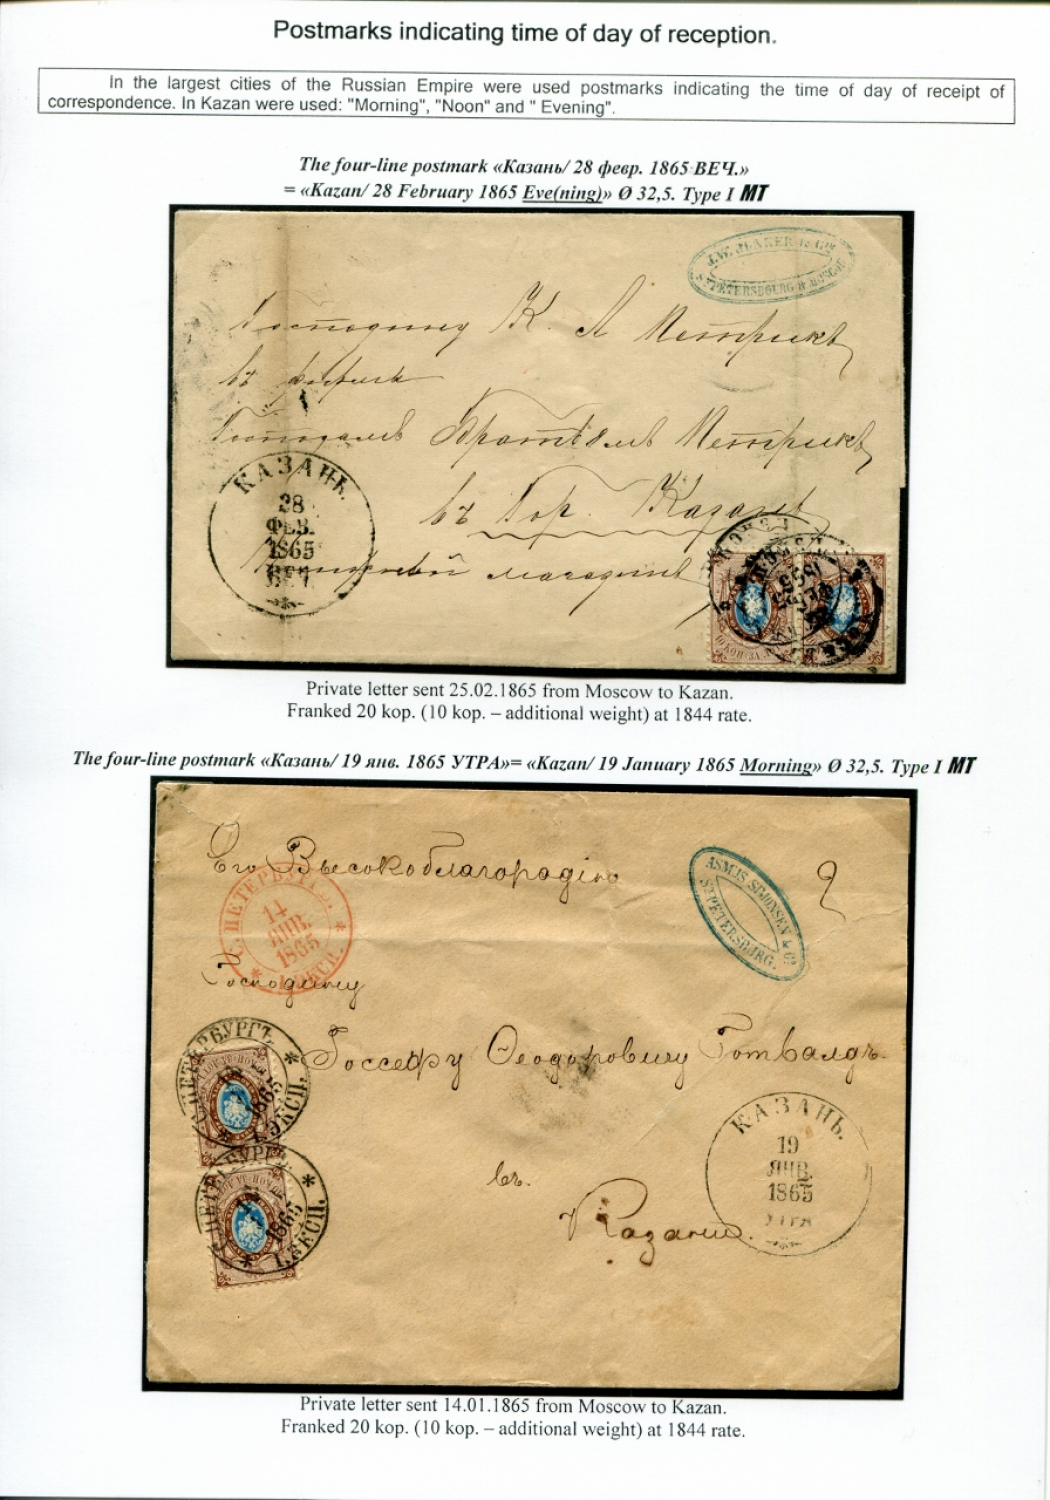 Postmarks indicating time of day of reception.
In the largest cities of the Russian Empire were used postmarks indicating the time of day of receipt of
correspondence. In Kazan were used: "Morning", "Noon" and " Evening".
The four-line postmark «Казань/ 28 февр. 1865 ВЕЧ.»
= «Kazan/ 28 February 1865 Eve(ning)» Ø 32,5. Type I MT
J.W. JUNKER & Co
ST PETERSBOURG & MOSCOU
Господину К. А Петрикъ
въ
Братьямъ Петрикъ
въ Гор. Казань
КАЗАНЬ.
28
ФЕВ.
1865
ВЕЧ.
магазинъ
Private letter sent 25.02.1865 from Moscow to Kazan.
Franked 20 kop. (10 kop. – additional weight) at 1844 rate.
The four-line postmark «Казань/ 19 янв. 1865 УТРА»= «Kazan/ 19 January 1865 Morning» Ø 32,5. Type I MT
Его Высокоблагородію
ASMIS SIMONSEN & Co
ST PETERSBURG.
С. ПЕТЕРБУРГЪ
14
ЯНВ.
1865
1. ЭКСП.
Господину
Іоссефу Ѳеодоровичу Готвалдъ.
С. ПЕТЕРБУРГЪ
1865
1. ЭКСП.
С. ПЕТЕРБУРГЪ
1865
1. ЭКСП.
въ.
Казани.
КАЗАНЬ.
19
ЯНВ.
1865
УТРА
Private letter sent 14.01.1865 from Moscow to Kazan.
Franked 20 kop. (10 kop. – additional weight) at 1844 rate.